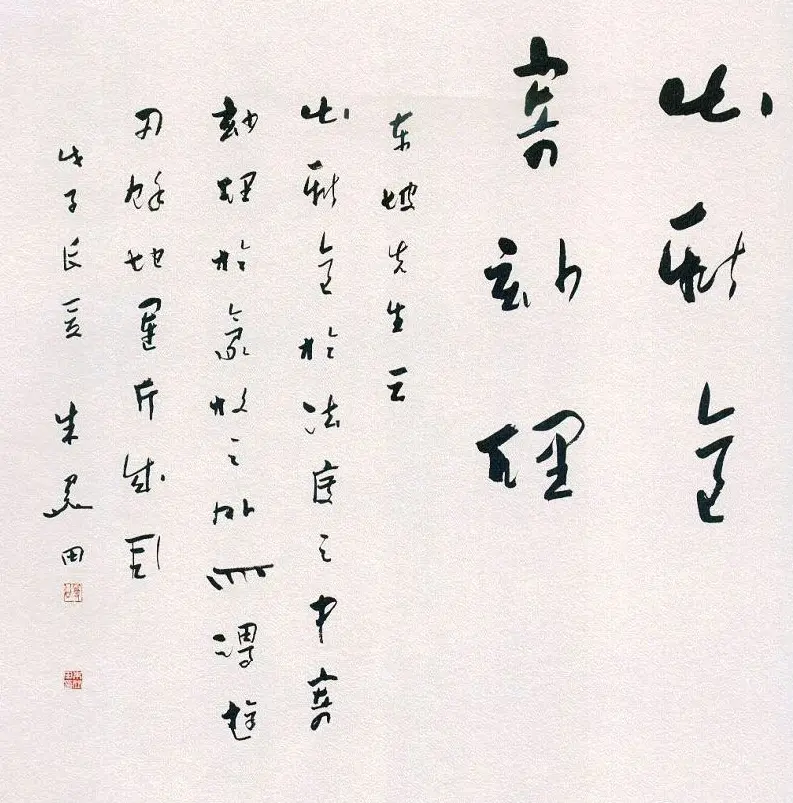 出新意
寄妙理
東坡先生云
出新意於法度之中寄
妙理於豪放之外所謂遊
刃餘地運斤成風
戊子長夏 朱關田